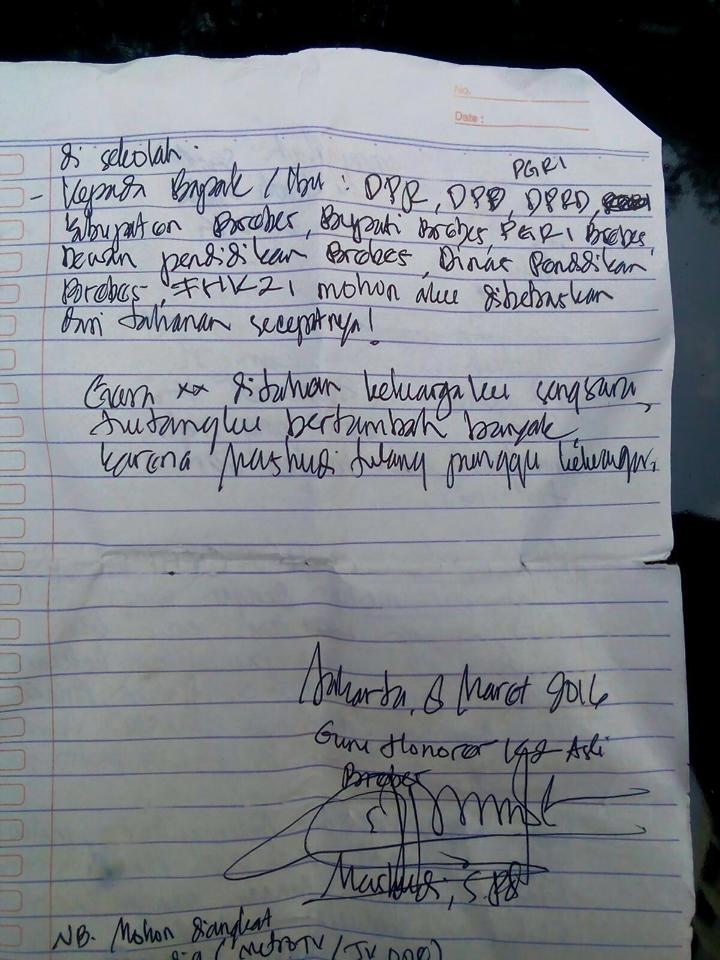 No.
Date :
di sekolah.
PGRI
- Kepada Bapak / Ibu : DPR, DPD, DPRD,
Kabupaten Brebes, Bupati Brebes, PGRI Brebes,
Dewan pendidikan Brebes, Dinas Pendidikan
Brebes, FHK21 mohon aku dibebaskan
dari tahanan secepatnya!
xx ditahan keluargaku sengsara,
hutangku bertambah banyak
karena Mashudi tulang punggu keluarga.
Jakarta, 8 Maret 2016
Guru Honorer K-2 Asli
Brebes
Mashudi, S.Pd
NB. Mohon diangkat
(MetroTV / TV ONE)